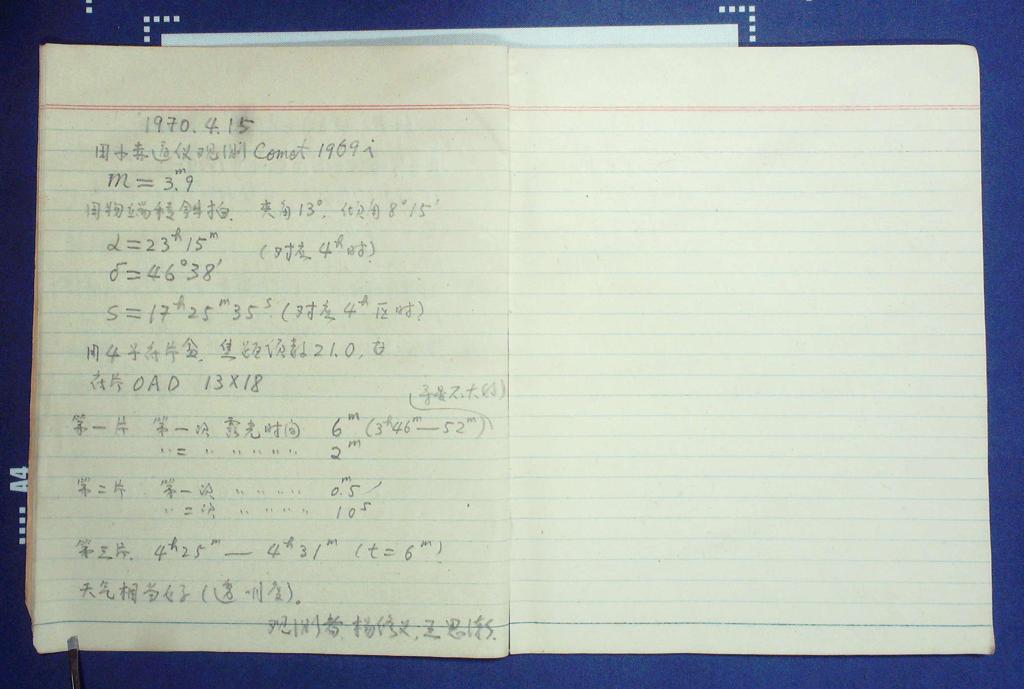 1970.4.15
用小赤道仪观测 Comet 1969 i
m = 3.ᵐ9
用物端棱斜拍. 夹角13°. 倾角8°15′
α = 23ʰ15ᵐ (对应 4ʰ时)
δ = 46°38′
S = 17ʰ25ᵐ35ˢ (对应 4ʰ区时)
用4号底片盒. 焦距读数21.0,
底片 OAD 13×18
(导星不大好)
第一片 第一次 露光时间 6ᵐ (3ʰ46ᵐ—52ᵐ)
〃 二 〃 〃 〃 〃 〃 2ᵐ
第二片 第一次 〃 〃 〃 〃 0.ᵐ5
〃 二次 〃 〃 〃 〃 10ˢ
第三片. 4ʰ25ᵐ — 4ʰ31ᵐ (t = 6ᵐ)
天气相当好 (透明度)。
观测者. 杨修义, 王思潮.
A4